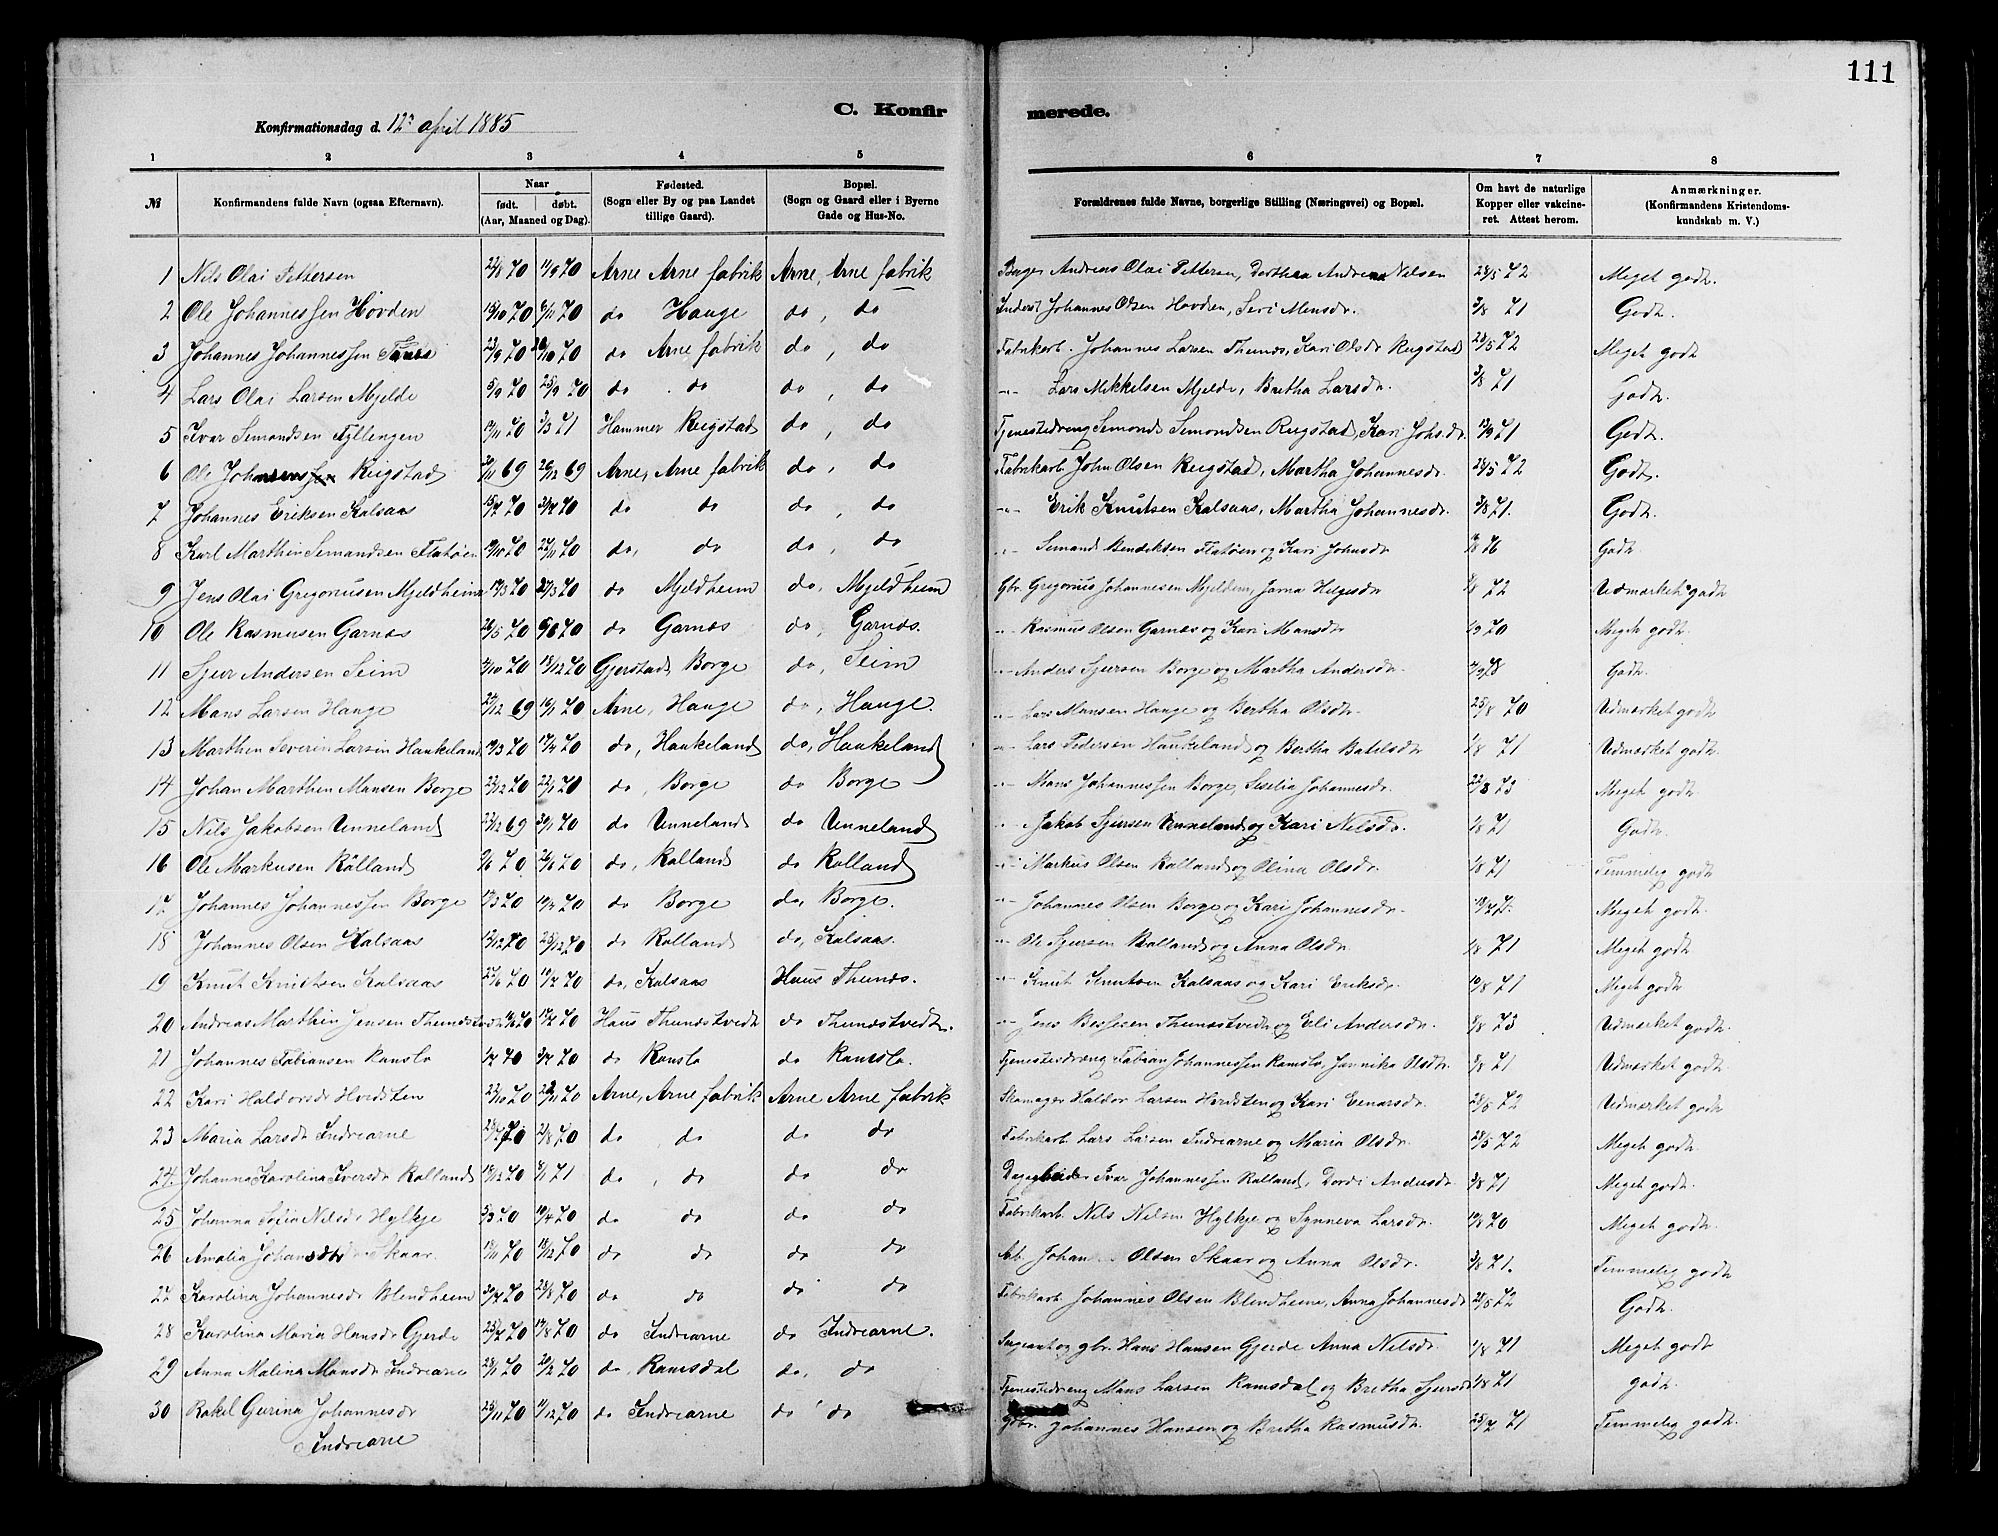 111
C. Konfirmerede.
Konfirmationsdag d. 12' april 1885
1 2 3 4 5 6 7 8
№ Konfirmandens fulde Navn (ogsaa Efternavn). Naar født. døbt. (Aar, Maaned og Dag). Fødested. (Sogn eller By og paa Landet tillige Gaard). Bopæl. (Sogn og Gaard eller i Byerne Gade og Hus-No. Forældrenes fulde Navne, borgerlige Stilling (Næringsvei) og Bopæl. Om havt de naturlige Kopper eller vakcineret. Attest herom. Anmærkninger. (Konfirmandens Kristendomskundskab m. V.)
1 Nils Olai Pettersen 70 11/9 70 Arne Arne fabrik Arne, Arne fabrik Andreas Olai Petteren, Dorthea Andrea Nilsen 28/5 72 Meget godt.
2 Ole Johannessen Hovden 15/10 70 6/11 70 do Hauge do, do Inderst Johannes Olsen Hovden, Siri Mensdr. 3/8 71 Godt.
3 Johannes Johannessen 23/9 70 70 do Arne fabrik do, do Fabrikarb. Johannes Larsen Thunæs, Kari Olsdr Rugstad 28/5 72 Meget godt
4 Lars Olai Larsen Mjelde 5/9 70 25/9 70 do do do, do -"- Lars Mikkelsen Mjelde, Bretha Larsdr. 3/8 71 Godt.
5 Ivar Semondsen Fyllingen 70 3/3 71 Hammer Rugstad do, do Tjenestedreng Semond Semondsen Rugstad, Kari Johs.dr 13/9 71 Godt.
6 Ole Rugstad 69 26/12 69 Arne, Arne fabrik do, do Fabrikarb John Olsen Rugstad, Martha Johannesdr. 28/5 72 Godt.
7 Johannes Eriksen Kalsaas 15/7 70 31/7 70 do do do, do -"- Erik Knutsen Kalsaas, Martha Johannesdr. 3/8 71. Godt.
8 Karl Marthin Semandsen Flatøen 70 70 do, do do, do -"- Semand Bendiksen Flatøen og Kari Johnsdr 76 Godt.
9 Jens Olai Gregoriusen Mjeldheim 70 27/3 70 do Mjeldheim do, Mjeldheim Gbr. Gregorius Johannesen Mjeldem, Helgesdr 72 Udmærket godt
10 Ole Rasmusen Garnæs 26/5 70 6/6 70 do Garnæs do, Garnæs. -"- Rasmus Olsen Garnæs og Kari Mansdr 70 Meget godt.
11 Sjur Andersen Seim 70 18/12 70 Gjerstad Borge do, Seim -"- Anders Sjursen Borge og Martha Andersdr. Godt.
12 Mans Larsen Hauge 69 16/1 70 Arne, Hauge do, Hauge. -"- Lars Mansen Hauge og Bertha Olsdr. 25/8 70 Udmærket godt
13 Marthen Severin Larsen Haukeland 70 17/4 70 do, Haukeland do, Haukeland -"- Lars Pedersen Haukeland og Bertha Batelsdr 1/8 71 Udmærket godt.
14 Johan Marthen Mansen Borge 22/12 70 22/1 70 do, Borge do Borge -"- Mans Johannessen Borge, Seselia Johannesdr. 22/8 73 Meget godt.
15 Nils Jakobsen Unneland 69 30/1 70 do Unneland do Unneland -"- Jakob Sjursen Unneland og Kari Nilsdr. 1/8 71 Godt.
16 Ole Markusen Rølland 70 70 do, Rolland do Rolland -"- Markus Olsen Rolland og Olina Olsdr. 1/8 71 Temmelig godt
17 Johannes Johannessen Borge 70 70 do Borge do, Borge. -"- Johannes Olsen Borge og Kari Johannesdr. Meget godt.
18 Johannes Olsen Kalsaas 70 25/12 70 do Rolland do, Kalsaas. -"- Ole Sjursen Rolland og Anna Olsdr. 1/8 71 Meget godt
19 Knut Knutsen Kalsaas 70 10/7 70 do, Kalsaas Haus Thunæs. -"- Knut Knutsen Kalsaas og Kari Eriksdr. 10/8 71 Meget godt
20 Andreas Marthin Jensen Thunæstvedt 70 70 Haus Thunæstvedt do Thunæstvedt. -"- Jens Thunæstvedt og Eli Andersdr. 8/8 73 Udmærket godt.
21 Johannes Fabiansen Ramslo 70 70 do Ramslo do Ramslo. Tjenestedræng Fabian Johannessen Ramslo, Jannika Olsdr. 8/8 71 Udmærket godt.
22 Kari Haldorsdr 22/10 70 70 Arne, Arne fabrik Arne Arne fabrik Skomager Haldor Larsen og Kari Einarsdr. 28/5 72 Udmærket godt
23 Maria Larsdr Indrearne 70 2/8 70 do do do do Fabrikarb. Lars Larsen Indrearne og Maria Olsdr. 28/5 72 Meget godt.
24. Johanna Karolina Iversdr Rolland 18/12 70 8/1 71 do, do do do Ivar Johannessen Rolland, Dordi Andersdr. 3/8 71 Meget godt.
25 Johanna Sofia Nilsdr Hylkje 5/3 70 10/4 70 do do do do Fabrikarb. Nils Nilsen Hylkje og Synneva Larsdr. 10/8 70 Meget godt.
26 Amalia Johansdr Skaar. 70 18/12 70 do do do do Arb. Johan Olsen Skaar og Anna Olsdr. 3/8 71. Temmelig godt
27 Karolina Johannesdr Blendheim 70 28/8 70 do do do do Fabrikarb Johannes Olsen Blendheim, Anna Johannesdr 28/5 72 Godt.
28 Karolina Maria Hansdr Gjerde 25/7 70 70 do Indrearne do Indrearne. Sergeant og gbr. Hans Hansen Gjerde Anna Nilsdr. 1/8 71 Meget godt
29 Anna Malina Mansdr Indrearne 70 70 do, Ramsdal do, do Tjenestedreng Mans Larsen Ramsdal og Bretha Sjursdr 1/8 71 godt.
30 Rakel Gurina Johannesdr 70 11/12 70 do Indrearne do do Gbr. Johannes Hansen og Bretha Rasmusdr. 25/7 71 Temmelig godt.
Indrearne